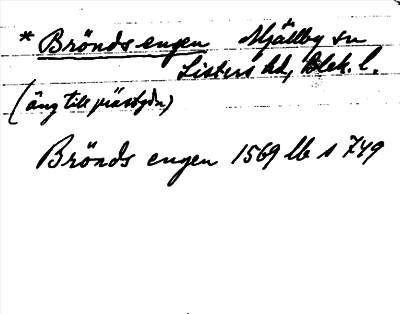 * Brönds engen Mjällby sn
Listers hd, Blek. l.
(äng till prästgdn)
Brönds engen 1569 lb s 749